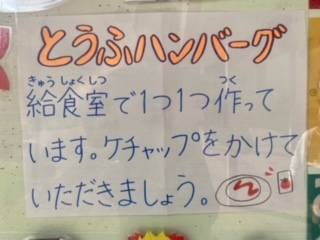 とうふハンバーグ
きゅうしょくしつ つく
給食室で1つ1つ作って
います。ケチャップをかけて
いただきましょう。